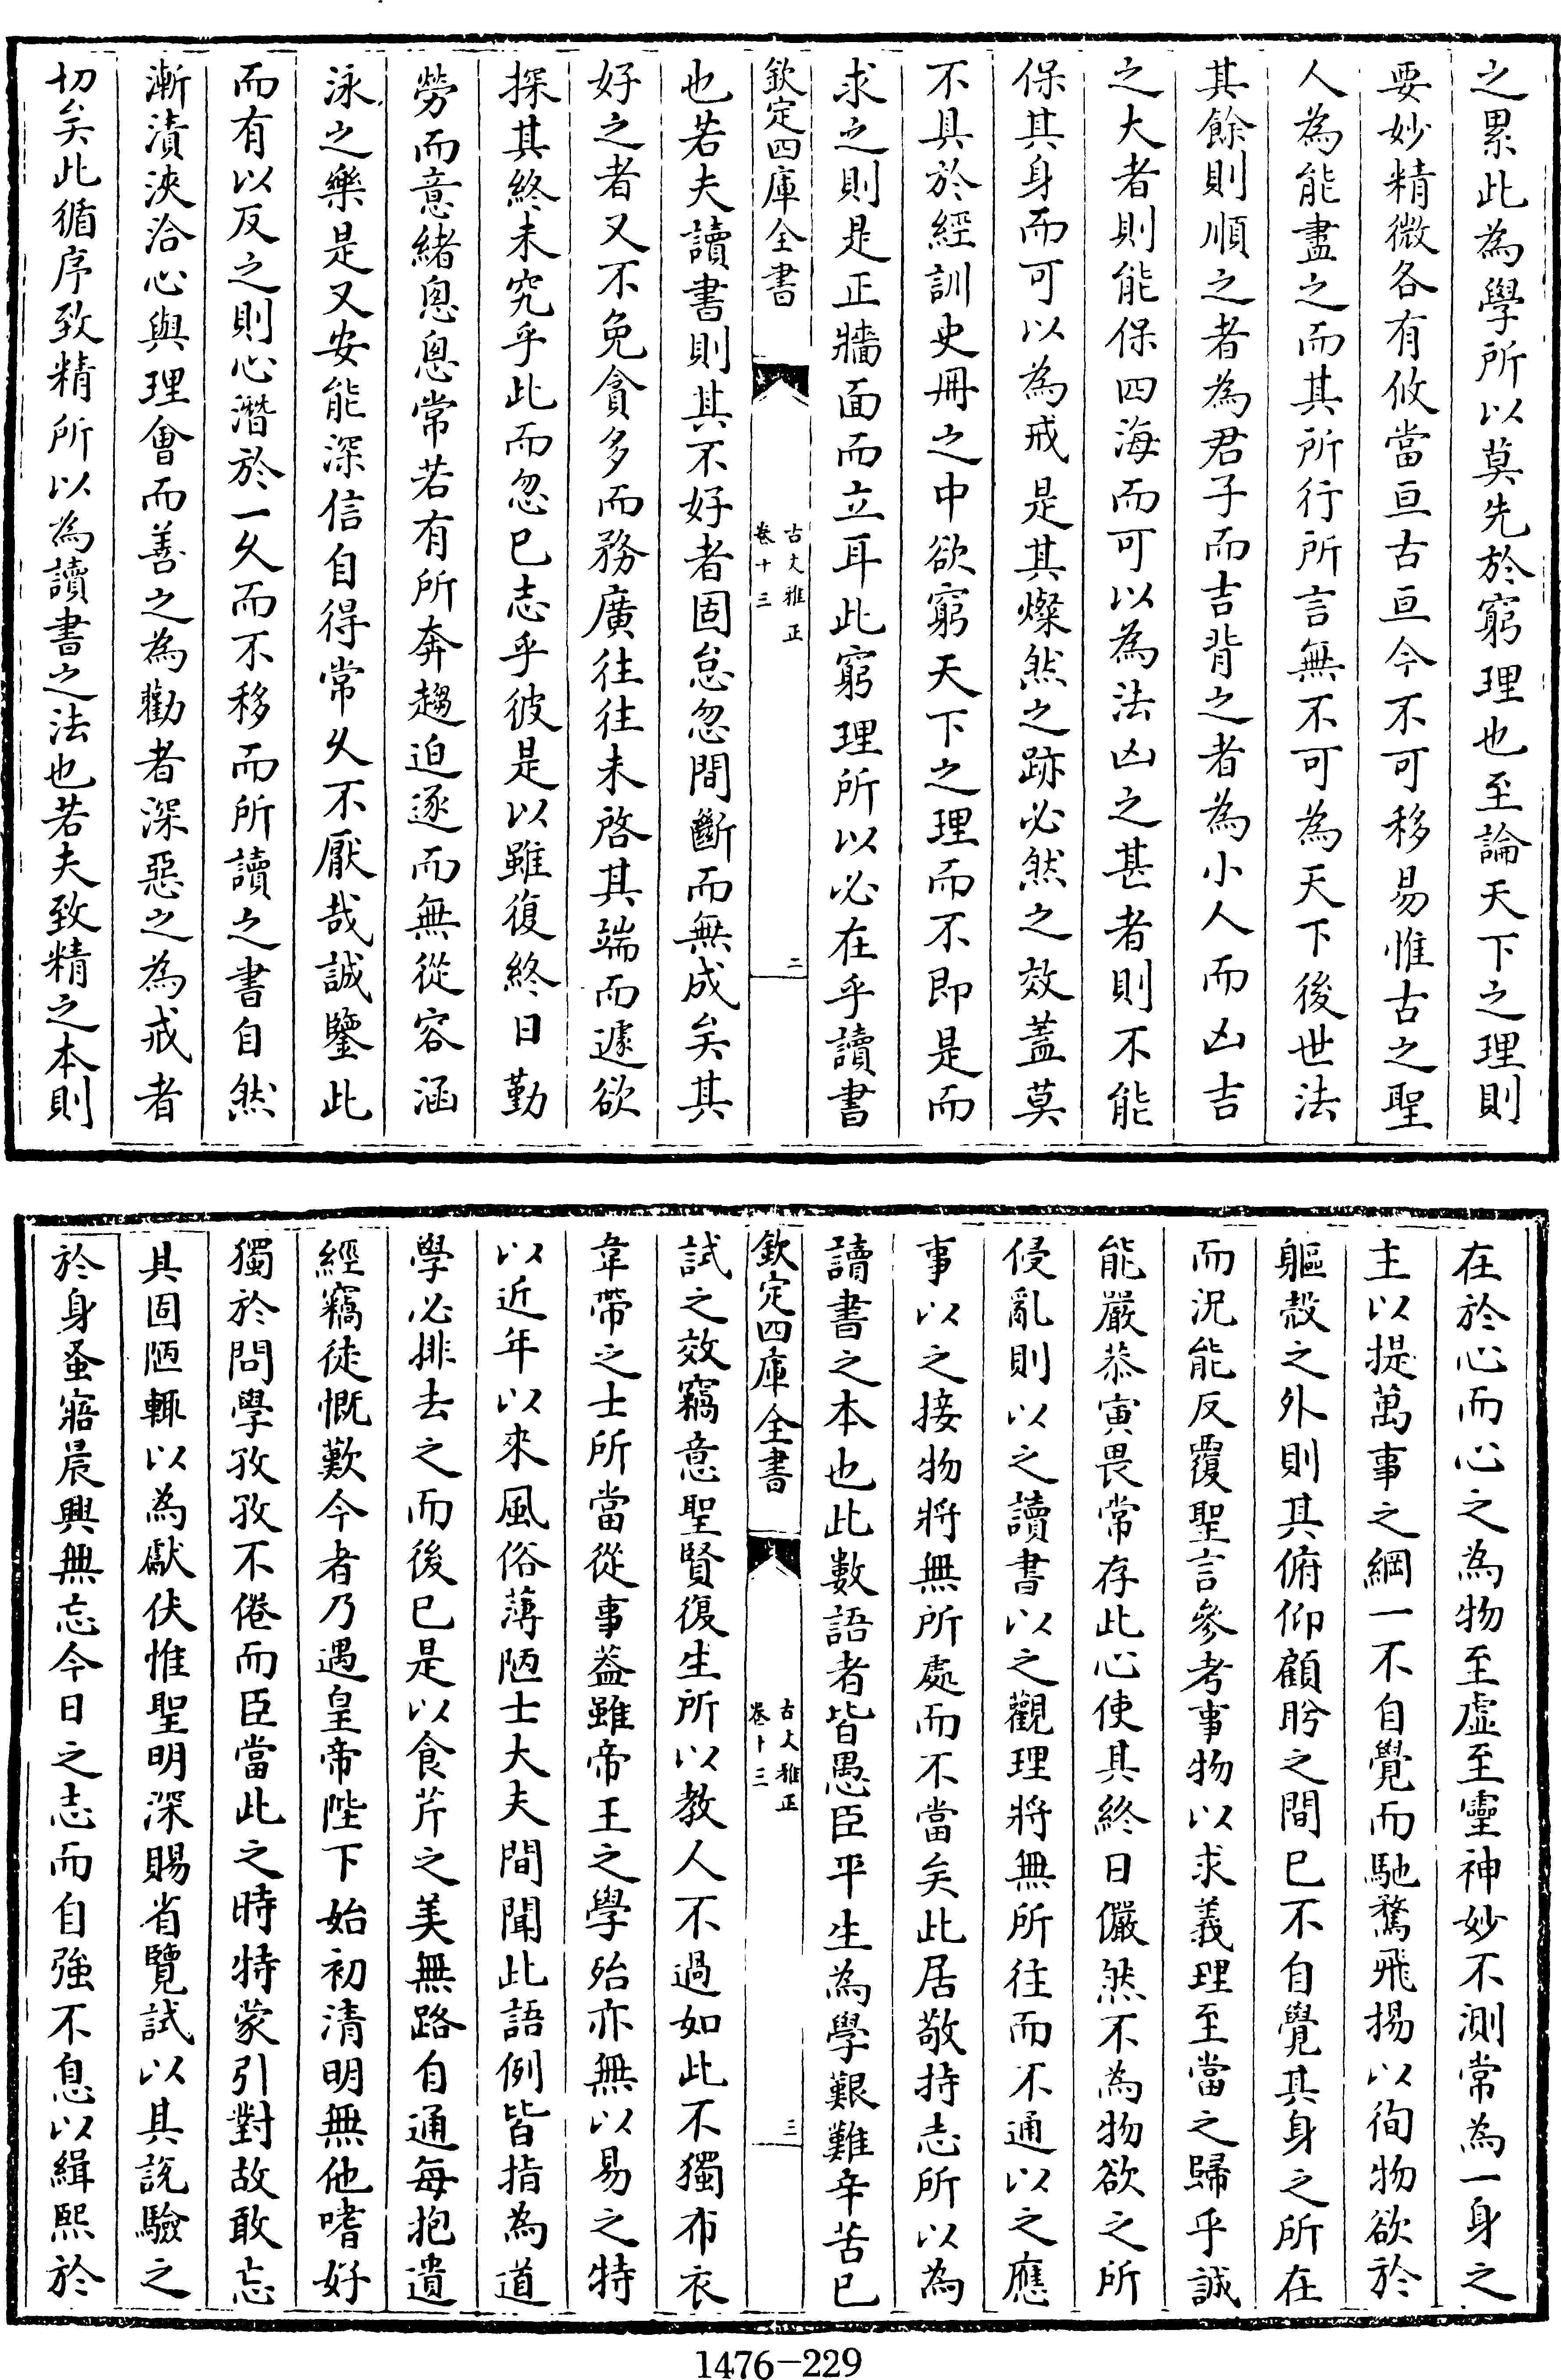 之累此為學所以莫先於窮理也至論天下之理則
要妙精微各有攸當亘古亘今不可移易惟古之聖
人為能盡之而其所行所言無不可為天下後世法
其餘則順之者為君子而吉背之者為小人而凶吉
之大者則能保四海而可以為法凶之甚者則不能
保其身而可以為戒是其燦然之跡必然之效蓋莫
不具於經訓史冊之中欲窮天下之理而不即是而
求之則是正牆面而立耳此窮理所以必在乎讀書
欽定四庫全書
古文雅正
卷十三
二
也若夫讀書則其不好者固怠忽間斷而無成矣其
好之者又不免貪多而務廣往往未啓其端而遽欲
探其終未究乎此而忽已志乎彼是以雖復終日勤
勞而意緒匆匆常若有所奔趨迫逐而無從容涵
泳之樂是又安能深信自得常久不厭哉誠鑒此
而有以反之則心潛於一久而不移而所讀之書自然
漸漬浹洽心與理會而善之為勸者深惡之為戒者
切矣此循序致精所以為讀書之法也若夫致精之本則
在於心而心之為物至虛至靈神妙不測常為一身之
主以提萬事之綱一不自覺而馳騖飛揚以徇物欲於
軀殼之外則其俯仰顧盻之間已不自覺其身之所在
而況能反覆聖言參考事物以求義理至當之歸乎誠
能嚴恭寅畏常存此心使其終日儼然不為物欲之所
侵亂則以之讀書以之觀理將無所往而不通以之應
事以之接物將無所處而不當矣此居敬持志所以為
讀書之本也此數語者皆愚臣平生為學艱難辛苦已
欽定四庫全書
古文雅正
卷十三
三
試之效竊意聖賢復生所以教人不過如此不獨布衣
韋帶之士所當從事蓋雖帝王之學殆亦無以易之特
以近年以來風俗薄陋士大夫間聞此語例皆指為道
學必排去之而後已是以食芹之美無路自通每抱遺
經竊徒慨歎今者乃遇皇帝陛下始初清明無他嗜好
獨於問學孜孜不倦而臣當此之時特蒙引對故敢忘
其固陋輒以為獻伏惟聖明深賜省覽試以其說驗之
於身蚤寤晨興無忘今日之志而自強不息以緝熙於
1476-229